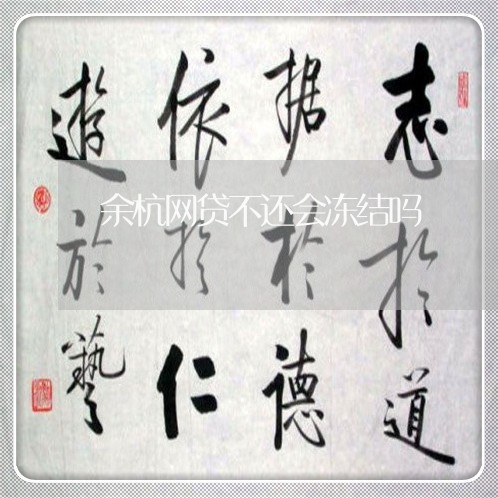 志於道
据於德
依於仁
遊於藝
余杭网贷不还会冻结吗